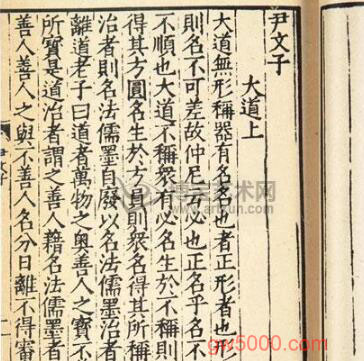 尹文子
大道上
大道無形稱器有名名也者正形者也
則名不可差故仲尼云必也正名乎名不
不順也大道不稱衆有必名生於不稱則
得其方圓名生於方員則衆名得其所稱
治者則名法儒墨自廢以名法儒墨治者
離道老子曰道者萬物之奧善人之寶不
所寶是道治者謂之善人藉名法儒墨者
善人善人之與不善人名分日離不得審
博宝艺术网
gw5000.com